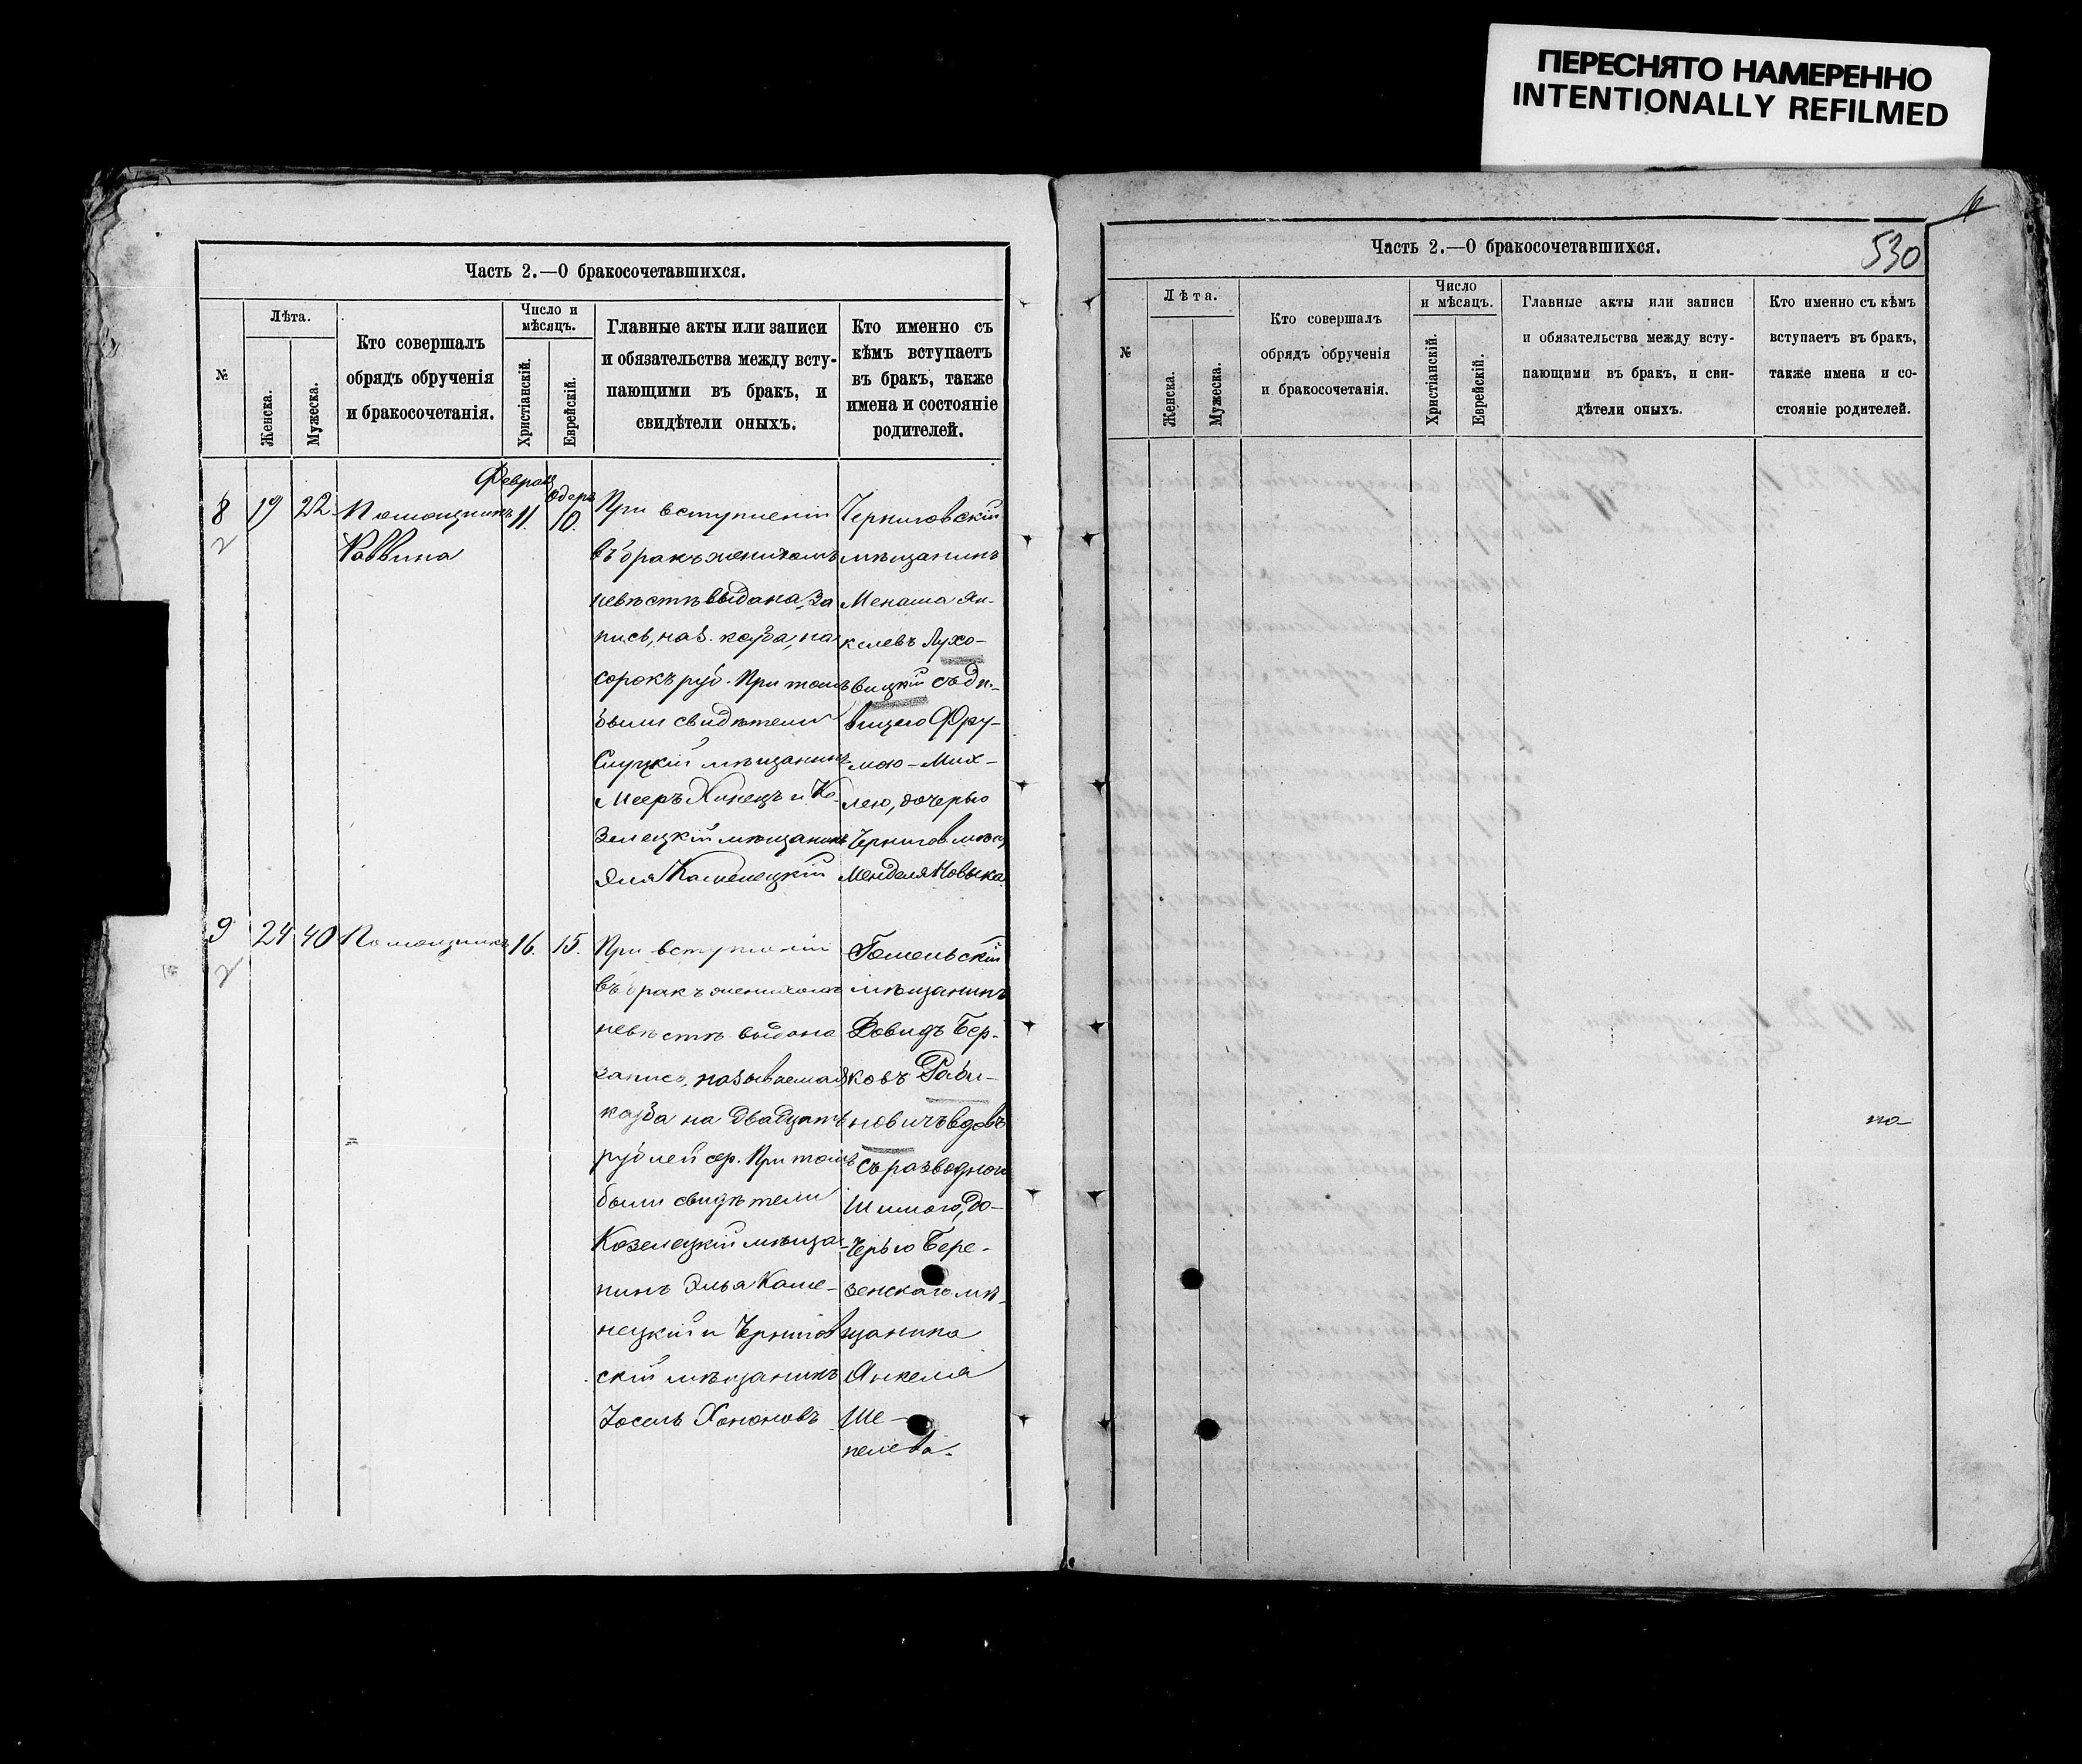 ПЕРЕСНЯТО НАМЕРЕННО
INTENTIONALLY REFILMED
Часть 2.—О бракосочетавшихся.
№
Лѣта.
Женска.
Мужеска.
Кто совершалъ
обрядъ обрученія
и бракосочетанія.
Число и
мѣсяцъ.
Христіанскій.
Еврейскій.
Главные акты или записи
и обязательства между всту-
пающими въ бракъ, и
свидѣтели оныхъ.
Кто именно съ
кѣмъ вступаетъ
въ бракъ, также
имена и состояніе
родителей.
8
2
19
22
Помощникъ
Раввина
Феврал
11.
Одеръ
10.
При вступленіи
въ бракъ женихомъ
невѣстѣ выдана за
пись, наз. кезба, на
сорокъ руб. При томъ
были свидѣтели
Слуцкій мѣщанинъ
Мееръ и Ко-
зелецкій мѣщанинъ
Эля Каменецкій
Черниговскій
мѣщанинъ
Менаша Ян-
келевъ Лухо-
вицкій съ дѣ-
вицею Фру-
мою-Мих-
лею, дочерью
Чернигов мѣщ
Менделя Новыка
9
2
24
40
Помощникъ
16.
15.
При вступленіи
въ бракъ женихомъ
невѣстѣ выдана
запись, называемая
кезба на двадцать
рублей сер. При томъ
были свидѣтели
Козелецкій мѣща-
нинъ Элья Каме-
нецкій и Чернигов
скій мѣщанинъ
Іосель Хононовъ
Гомельскій
мѣщанинъ
Довидъ Бер-
ковъ Раби-
новичъ вдовъ
съ разводною
дo-
черью Бере-
зенскаго мѣ-
щанина
Янкеля
Ше-
пелева.
Часть 2.—О бракосочетавшихся.
530
№
Лѣта.
Женска.
Мужеска.
Кто совершалъ
обрядъ обрученія
и бракосочетанія.
Число
и мѣсяцъ.
Христіанскій.
Еврейскій.
Главные акты или записи
и обязательства между всту-
пающими въ бракъ, и сви-
дѣтели оныхъ.
Кто именно съ кѣмъ
вступаетъ въ бракъ,
также имена и со-
стояніе родителей.